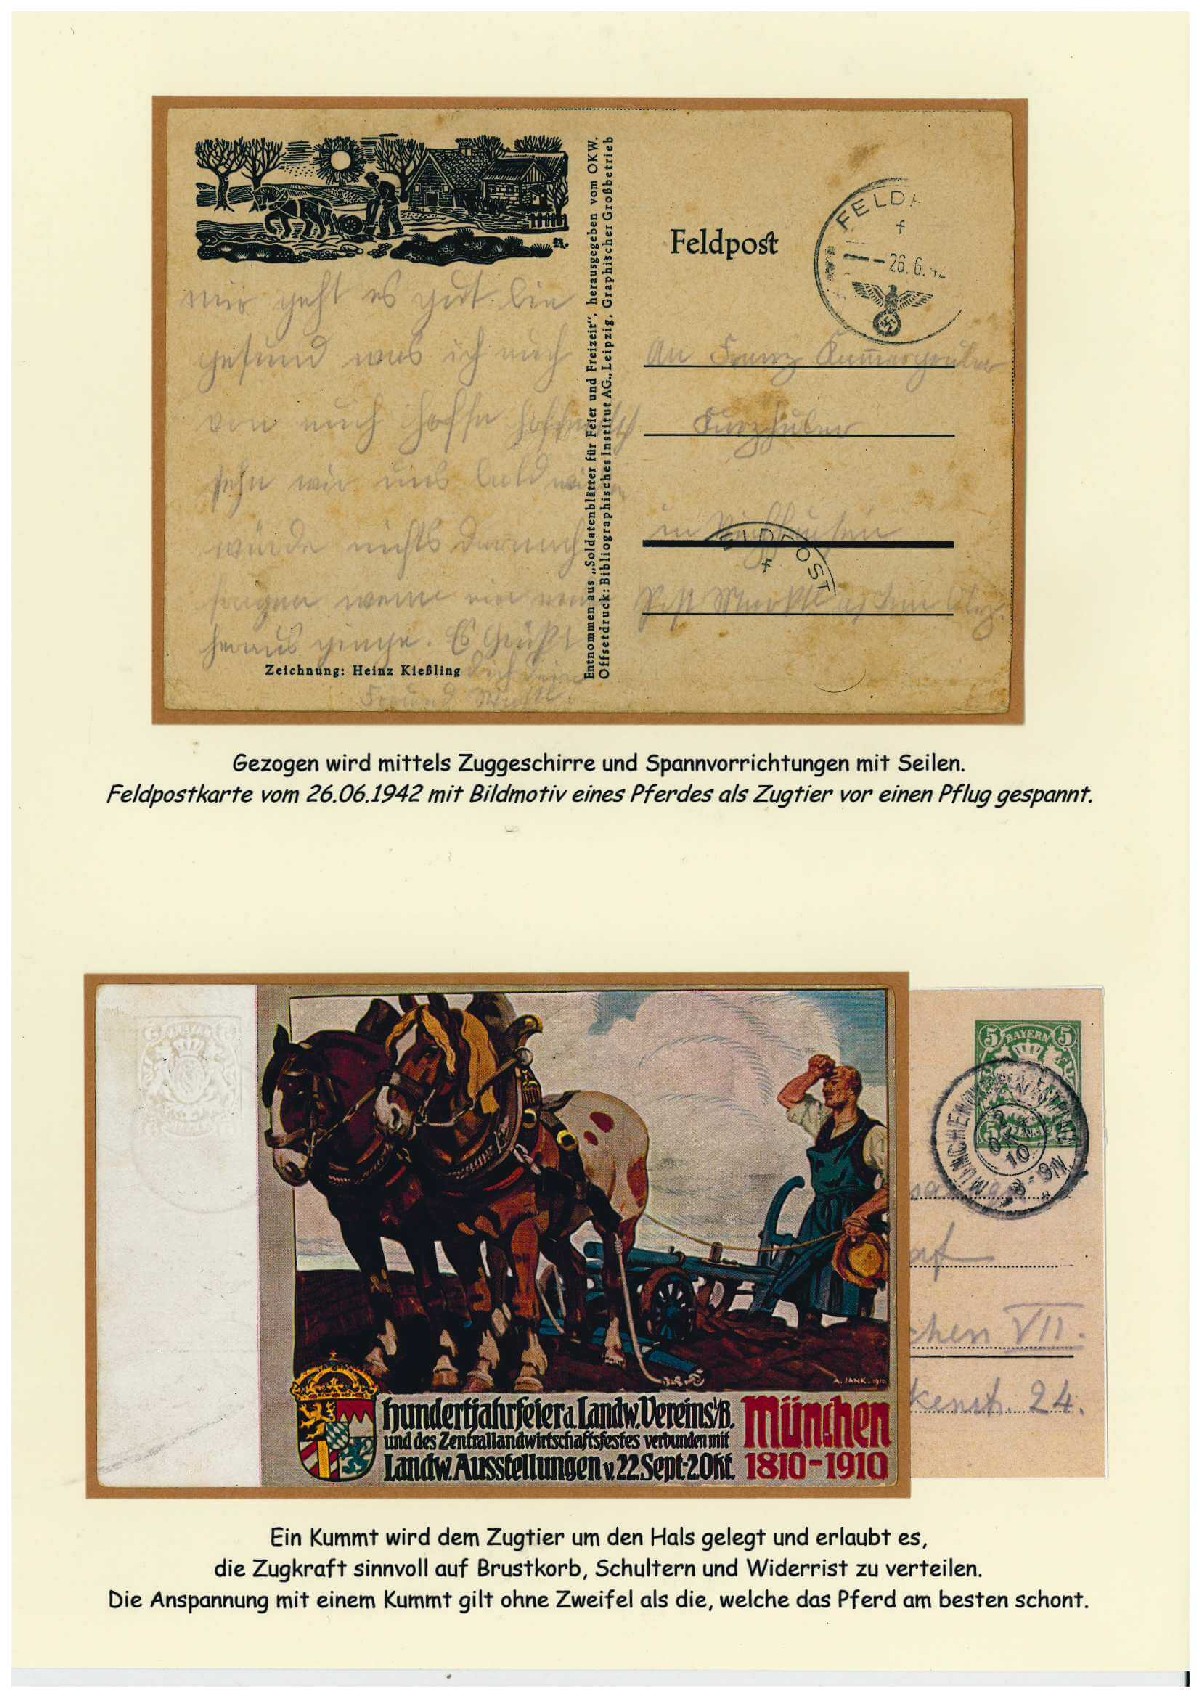 Entnommen aus „Soldatenblätter für Feier und Freizeit“, herausgegeben vom OKW.
Offsetdruck: Bibliographisches Institut AG., Leipzig. Graphischer Großbetrieb
mir geht es gut bin
gesund was ich auch
von euch hoffe hoffentlich
sehn wir uns bald wieder
würde nichts darnach
fragen wenn
heraus ginge. Es Grüßt
Dich dein
Freund
Zeichnung: Heinz Kießling
Feldpost
FELD
f
26.6.42
An Franz
in
FELDPOST
f
Post
Gezogen wird mittels Zuggeschirre und Spannvorrichtungen mit Seilen.
Feldpostkarte vom 26.06.1942 mit Bildmotiv eines Pferdes als Zugtier vor einen Pflug gespannt.
A. JANK. 1910
hundertjahrfeier d. Landw. Vereins i/B.
und des Zentrallandwirtschaftsfestes verbunden mit
Landw. Ausstellungen v. 22 Sept-2 Okt.
München
1810-1910
5 BAYERN 5
MÜNCHEN
10
8-9N
af
chen VII.
kenst. 24.
Ein Kummt wird dem Zugtier um den Hals gelegt und erlaubt es,
die Zugkraft sinnvoll auf Brustkorb, Schultern und Widerrist zu verteilen.
Die Anspannung mit einem Kummt gilt ohne Zweifel als die, welche das Pferd am besten schont.